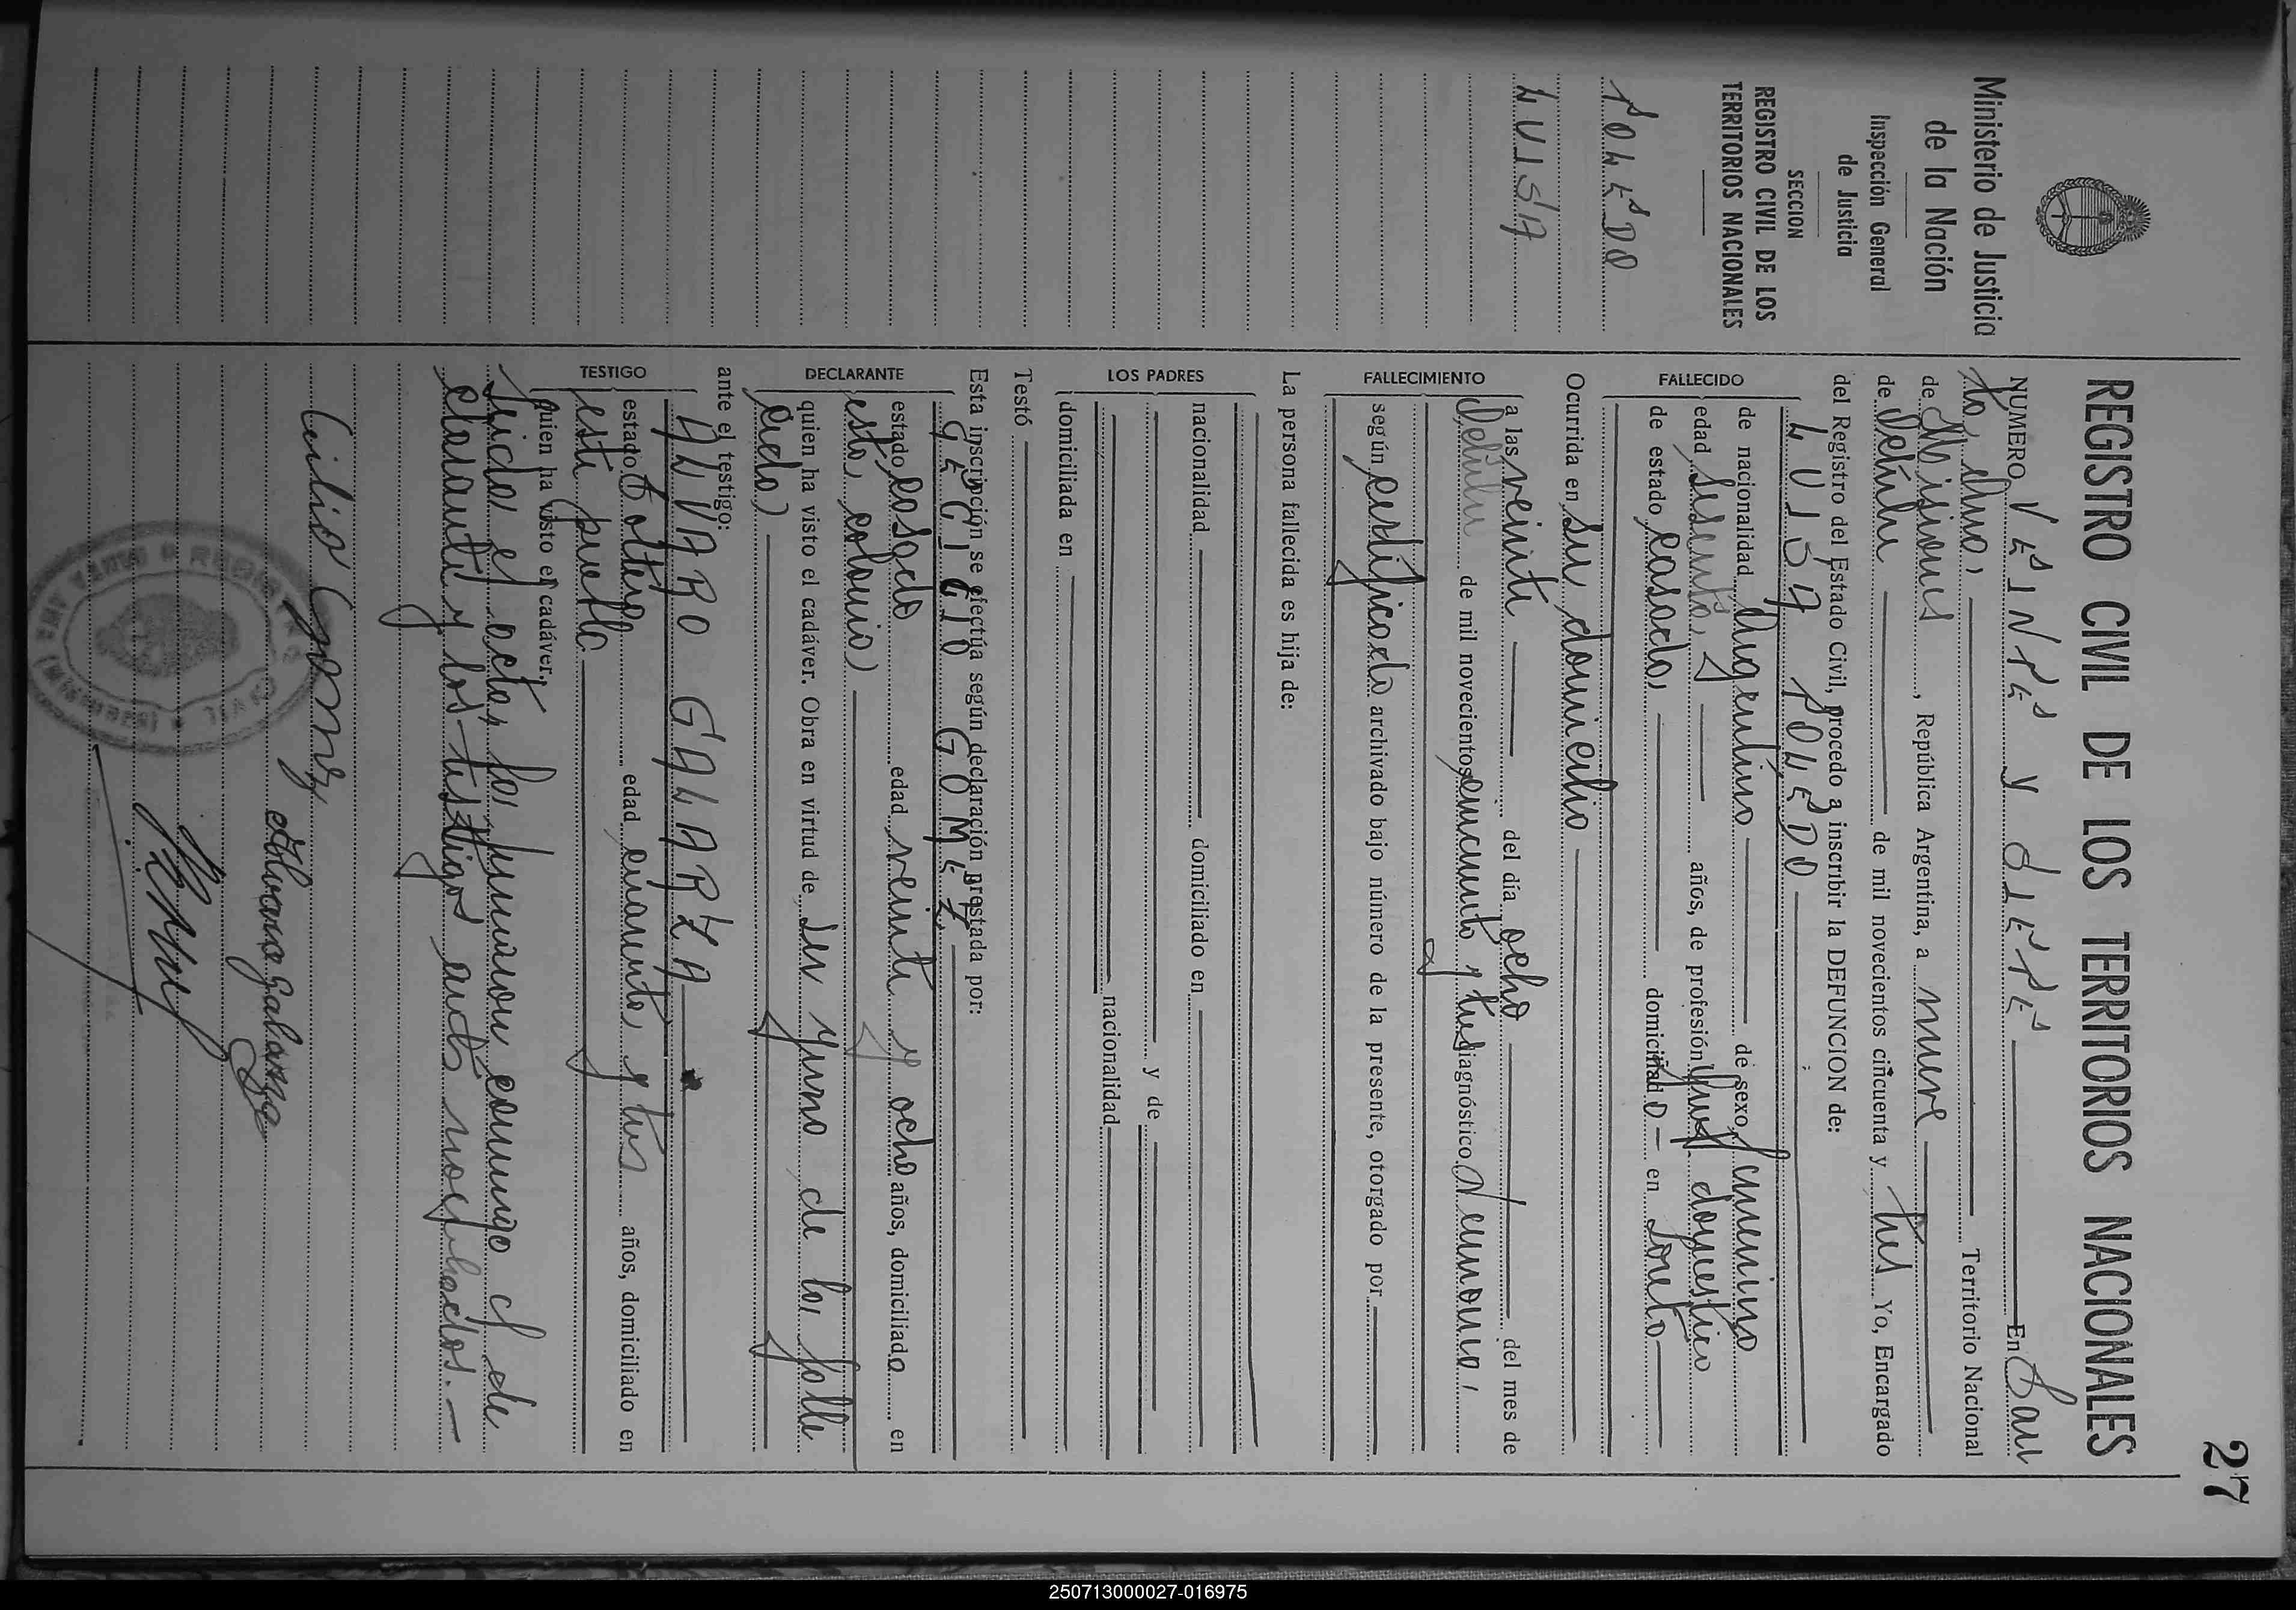 27
Ministerio de Justicia
de la Nación
Inspección General
de Justicia
SECCION
REGISTRO CIVIL DE LOS
TERRITORIOS NACIONALES
TOLEDO
LUISA
REGISTRO CIVIL DE LOS TERRITORIOS NACIONALES
NUMERO VEINTE Y SIETE En San
ta Ana, Territorio Nacional
de Misiones, República Argentina, a nueve
de Octubre de mil novecientos cincuenta y tres Yo, Encargado
del Registro del Estado Civil, procedo a inscribir la DEFUNCION de:
FALLECIDO
LUISA TOLEDO
de nacionalidad Argentina de sexo femenino
edad sesenta años, de profesión domestica
de estado casada domiciliado en Loreto
Ocurrida en su domicilio
FALLECIMIENTO
a las veinte del día ocho del mes de
Octubre de mil novecientos cincuenta y tres diagnóstico
según certificado archivado bajo número de la presente, otorgado por
La persona fallecida es hija de:
LOS PADRES
nacionalidad domiciliado en
y de
nacionalidad
domiciliada en
Testó
Esta inscripción se efectúa según declaración prestada por:
DECLARANTE
GOMEZ
estado casado edad veinte y ocho años, domiciliado en
esta colonia
quien ha visto el cadáver. Obra en virtud de ser yerno de la falle
cida
ante el testigo:
TESTIGO
ALVARO GALARZA
estado soltero edad cuarenta y tres años, domiciliado en
este pueblo
quien ha visto el cadáver,
Leida el acta, la firmaron conmigo el de
clarante y los testigos antes nombrados.
Gomez
Alvaro Galarza
250713000027-016975